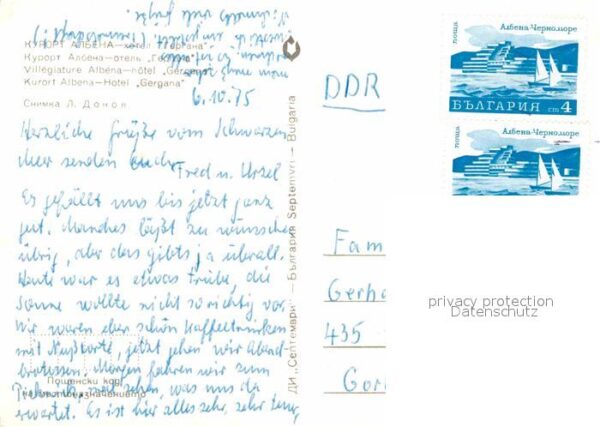 КУРОРТ АЛБЕНА—хотел "Гергана"
Курорт Албена—отель "Гергана"
Villegiature Albena—hôtel "Gergana"
Kurort Albena—Hotel "Gergana"
Снимка Л. Донов
6.10.75
Herzliche Grüße vom Schwarzen
Meer senden Euch
Fred u. Ursel
Es gefällt uns bis jetzt ganz
gut. Manches läßt zu wünschen
übrig, aber das gibts ja überall.
Heute war es etwas trübe, die
Sonne wollte nicht so richtig vor.
Wir waren eben schön Kaffeetrinken
mit Nußtorte, jetzt gehen wir Abend
brotessen. Morgen fahren wir zum
Picknick, mal sehen, was uns da
erwartet. Es ist hier alles sehr, sehr teuer,
Пощенска карта
ДИ „Септември" — България Septemvri — Bulgaria
DDR
поща Албена-Черноморе
БЪЛГАРИЯ ст 4
поща Албена-Черноморе
Fam
Gerha
435
privacy protection
Datenschutz